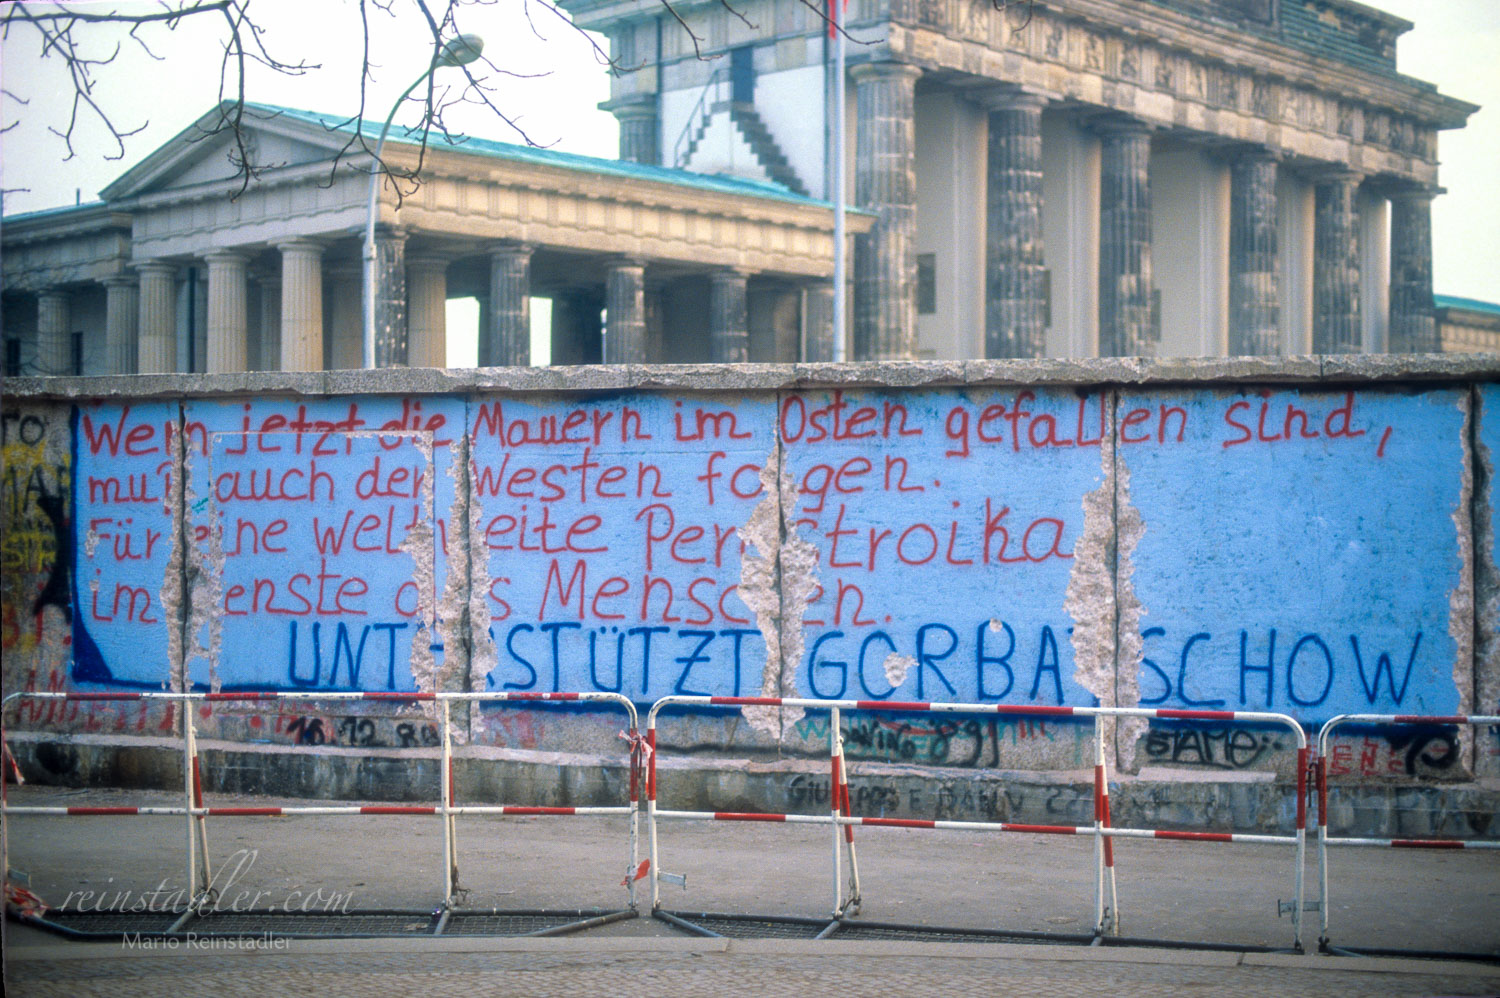 Wenn jetzt die Mauern im Osten gefallen sind,
muß auch der Westen folgen.
Für eine weltweite Perestroika
im Dienste des Menschen.
UNTERSTÜTZT GORBATSCHOW
16.12.89
89
STAME
GIUSEPPE
reinstadler.com
Mario Reinstadler